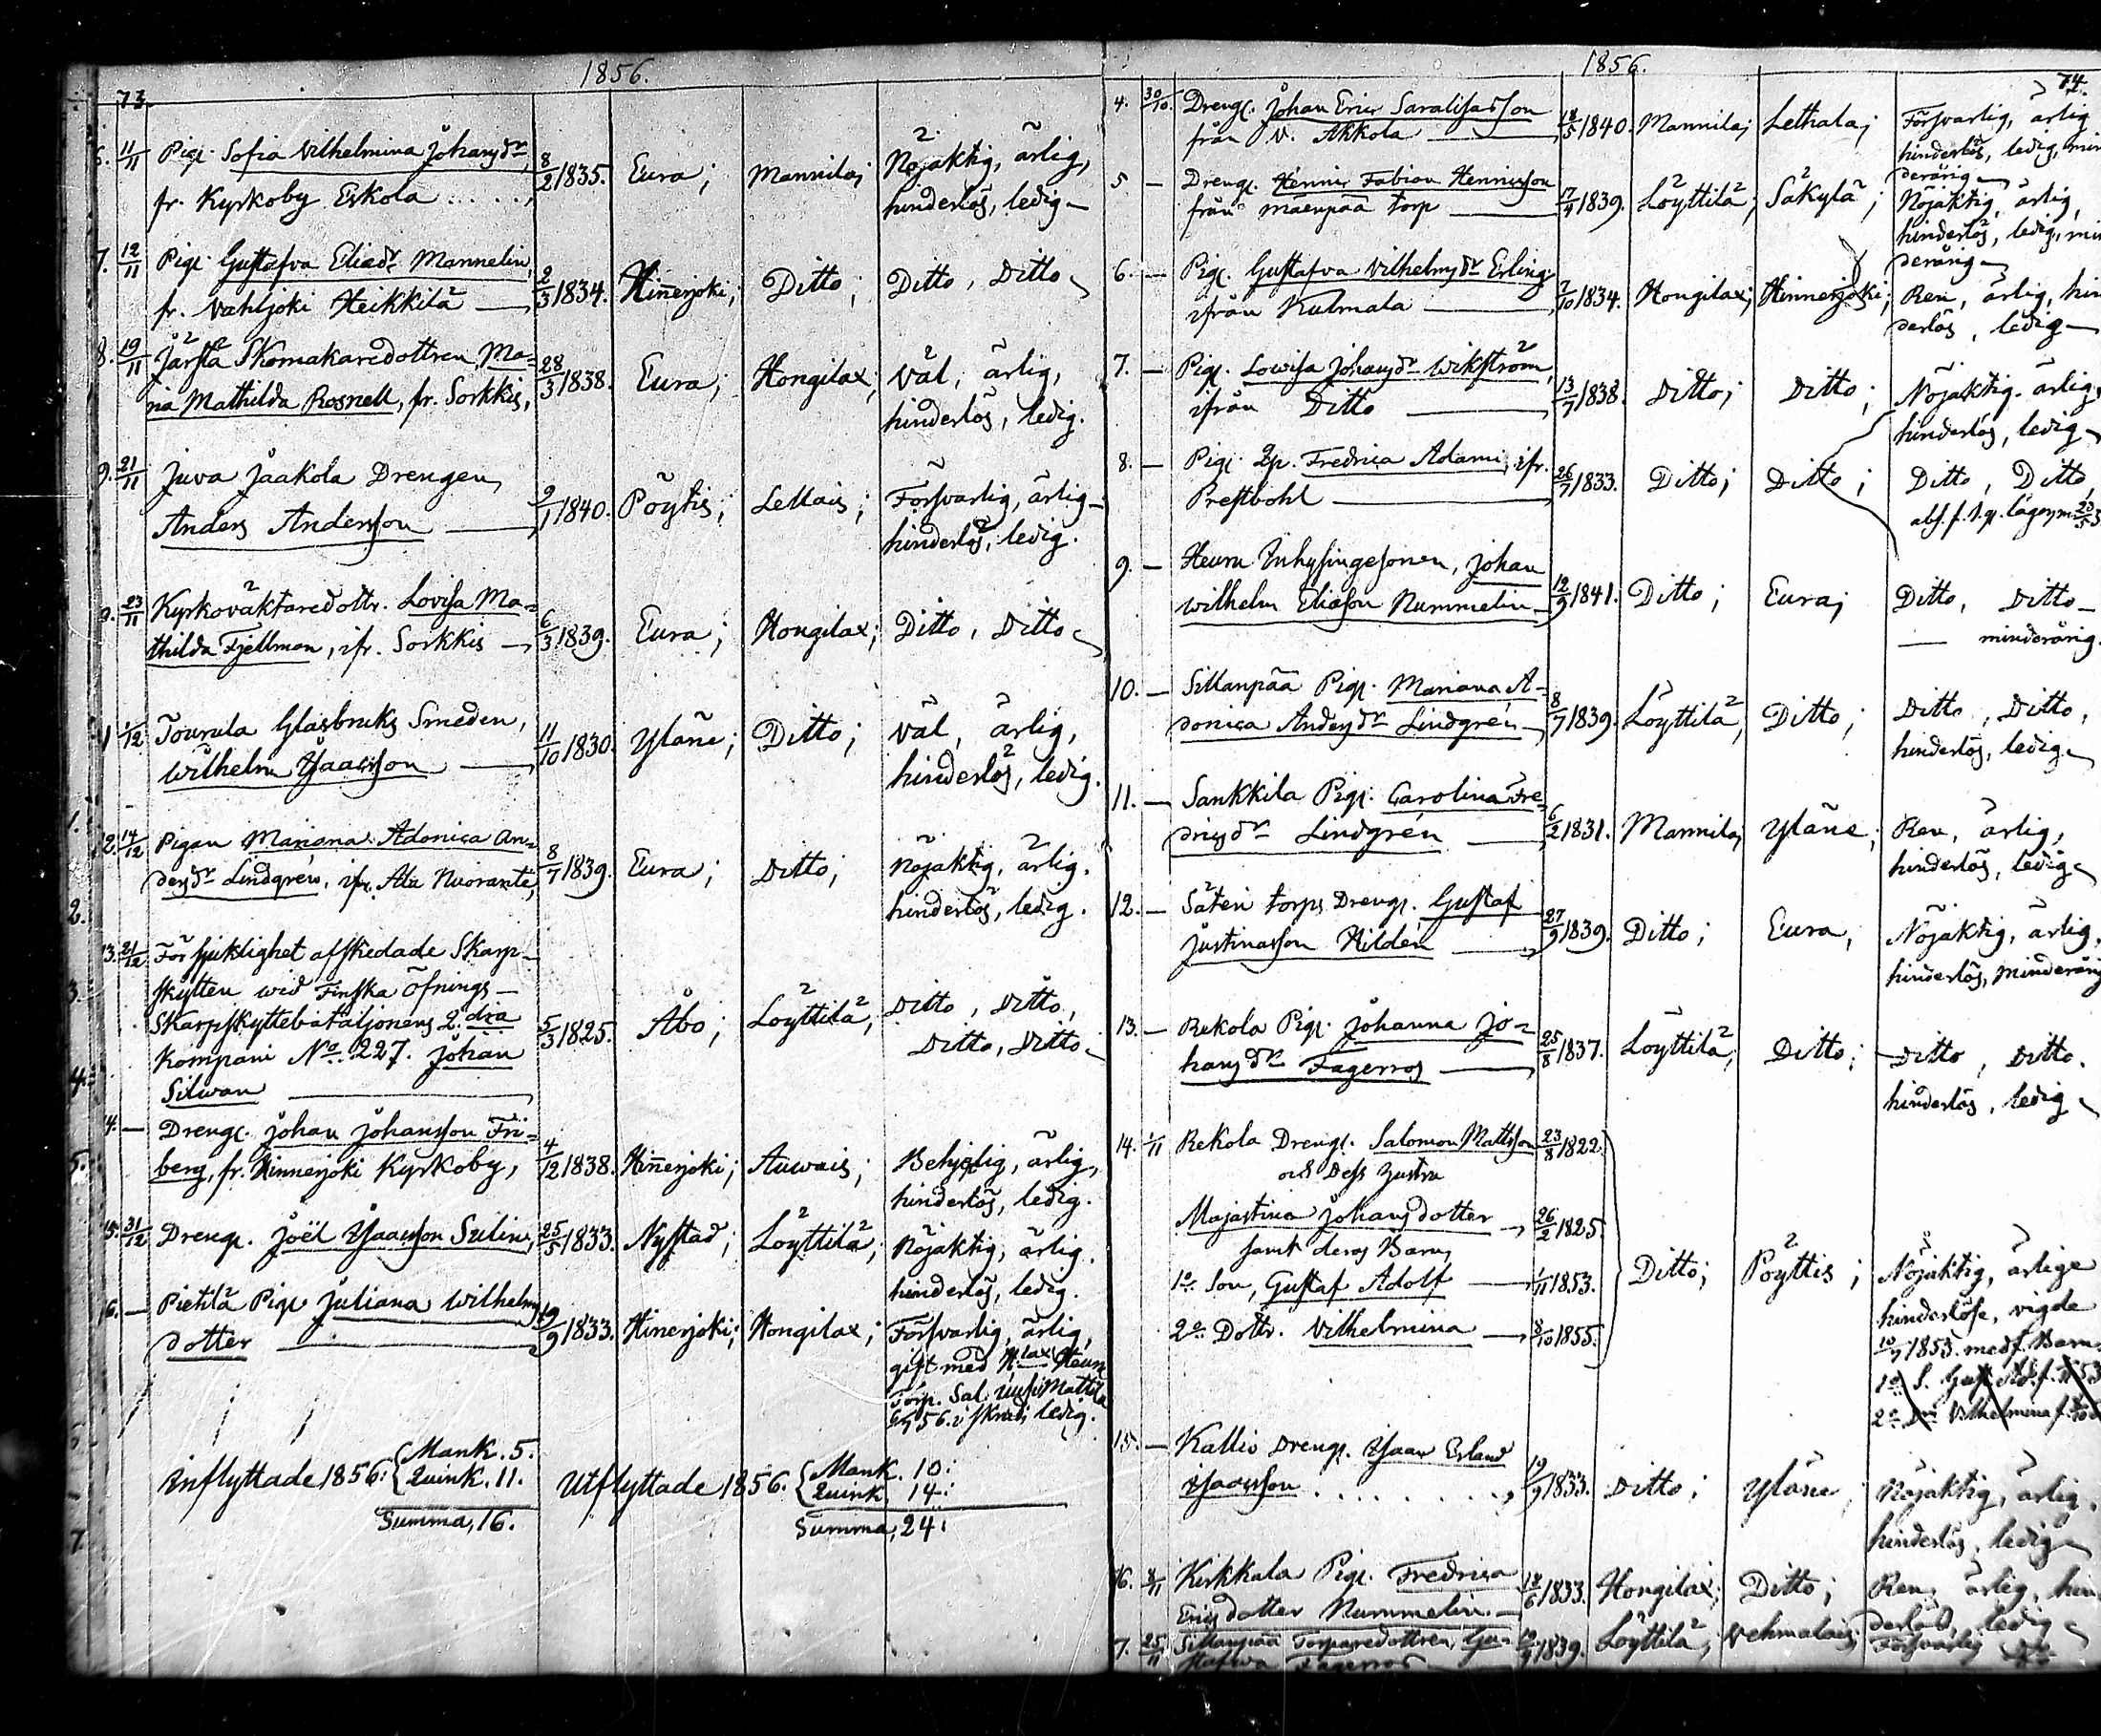 1856.
73.
6. 11/11 Pig. Sofia Wilhelmina Johansdr, 8/2 1835. Eura; Mannila; Nöjaktig, ärlig,
fr. Kyrkoby Eskola ..... hinderlös, ledig
7. 12/11 Pig. Gustafva Eliædr Mannelin, 2/3 1834. Hinnerjoki; Ditto; Ditto, Ditto
fr. Vahljoki Heikkilä
8. 19/11 Järftä Skomakaredottren Ma= 28/3 1838. Eura; Hongilax; väl, ärlig,
ria Mathilda Rosnell, fr. Sorkkis, hinderlös, ledig.
9. 21/11 Juva Jaakola Drengen 9/1 1840. Pöytis; Lellais; Försvarlig, ärlig
Anders Andersson hinderlös, ledig.
23/11 Kyrkoväktaredottr. Lovisa Ma= 6/3 1839. Eura; Hongilax; Ditto, Ditto
thilda Fjellman, ifr. Sorkkis
1/12 Tourula Glasbruks Smeden, 11/10 1830. Yläne; Ditto; väl, ärlig,
Wilhelm Isaacsson hinderlös, ledig.
2. 14/12 Pigan Mariana Adonica An= 8/7 1839. Eura; Ditto; Nöjaktig, ärlig.
dersdr Lindgrén, ifr. Ala Nuorante, hinderlös, ledig.
3. 21/12 För sjuklighet afskedade Skarp-
skytten wid Finska Öfnings-
Skarpskyttebataljonens 2:dra 5/3 1825. Åbo; Löyttilä; Ditto, Ditto,
Kompani No. 227. Johan Ditto, Ditto
Silwan
4. — Dreng. Johan Johansson Fri= 4/12 1838. Hinnerjoki; Auvais; Behjelig, ärlig,
berg, fr. Hinnerjoki Kyrkoby, hinderlös, ledig.
15. 31/12 Dreng. Joël Isaacsson Sulin, 25/5 1833. Nystad; Löyttilä; Nöjaktig, ärlig.
hinderlös, ledig.
16. — Pietilä Pig. Juliana Wilhelms 19/9 1833. Hinnerjoki; Hongilax; Försvarlig, ärlig,
dotter gift med H:lax Heurn
Torp. Sal. Uusi Mattila
56. i skrudi ledig.
Inflyttade 1856: Mank. 5.
Quink. 11.
Summa, 16.
Utflyttade 1856. Mank. 10.
Quink 14.
Summa, 24.
1856.
74.
4. 30/10. Dreng. Johan Eric Saralisasson 18/5 1840. Mannila; Lethala; Försvarlig, ärlig
från N. Akkola hinderlös, ledig, min
derårig
5 — Dreng. Hennric Fabian Henricsson 17/4 1839. Löyttilä; Säkylä; Nöjaktig, ärlig,
från Mäenpää torp hinderlös, ledig, min
derårig
6. — Pig. Gustafva Wilhelmsdr Erling 7/10 1834. Hongilax; Hinnerjoki; Ren, ärlig, hin
ifrån Kulmala derlös, ledig
7. — Pig. Lowisa Johansdr Wikström, 13/7 1838. Ditto; Ditto; Nöjaktig. ärlig,
ifrån Ditto hinderlös, ledig
8. — Pig. Fredrica Adami, ifr. 26/7 1833. Ditto; Ditto; Ditto, Ditto,
Prestbohl
9. — Heurn Inhysingesonen, Johan 12/9 1841. Ditto; Eura; Ditto, Ditto
Wilhelm Eliason Nummelin — minderårig.
10. — Sillanpää Pig. Mariana A= 8/7 1839. Löyttilä; Ditto; Ditto, Ditto,
donica Andersdr Lindgrén hinderlös, ledig
11. — Sankkila Pig. Carolina Fre= 6/2 1831. Mannila; Yläne; Ren, ärlig,
dricsdr Lindgrén hinderlös, ledig
12. — Säteri torps Dreng. Gustaf 27/9 1839. Ditto; Eura, Nöjaktig, ärlig,
Justinasson Hildén hinderlös, minderårig
13. — Rekola Pig. Johanna Jo= 25/8 1837. Löyttilä; Ditto; Ditto, Ditto.
hansdr Fagerros hinderlös, ledig
14. 1/11 Rekola Dreng. Salomon Mattsson 23/8 1822.
och Dess hustru
Majastina Johansdotter 26/2 1825.
samt deras Barn,
1o Son, Gustaf Adolf 1/11 1853. Ditto; Pöyttis; Nöjaktig, ärlige
2o Dottr. Vilhelmina 8/10 1855. hinderlöse, vigde
10/7 1853. med f. Barn
1o S. Gust. Ad. f. 1/11 53
2o Dr Vilhelmina f.
15. — Kallio Dreng. Isaac Erland 19/9 1833. Ditto; Yläne; Nöjaktig, ärlig.
Isaacsson ........ hinderlös, ledig
16. 8/11 Kirkkala Pig. Fredrica 18/6 1833. Hongilax; Ditto; Ren, ärlig, hin
Ericsdotter Nummelin derlös, ledig
7. 25/11 Sillanpää Torparedottren, Gu= 1839. Löyttilä; Vehmalais; Försvarlig
stafwa Fagerros